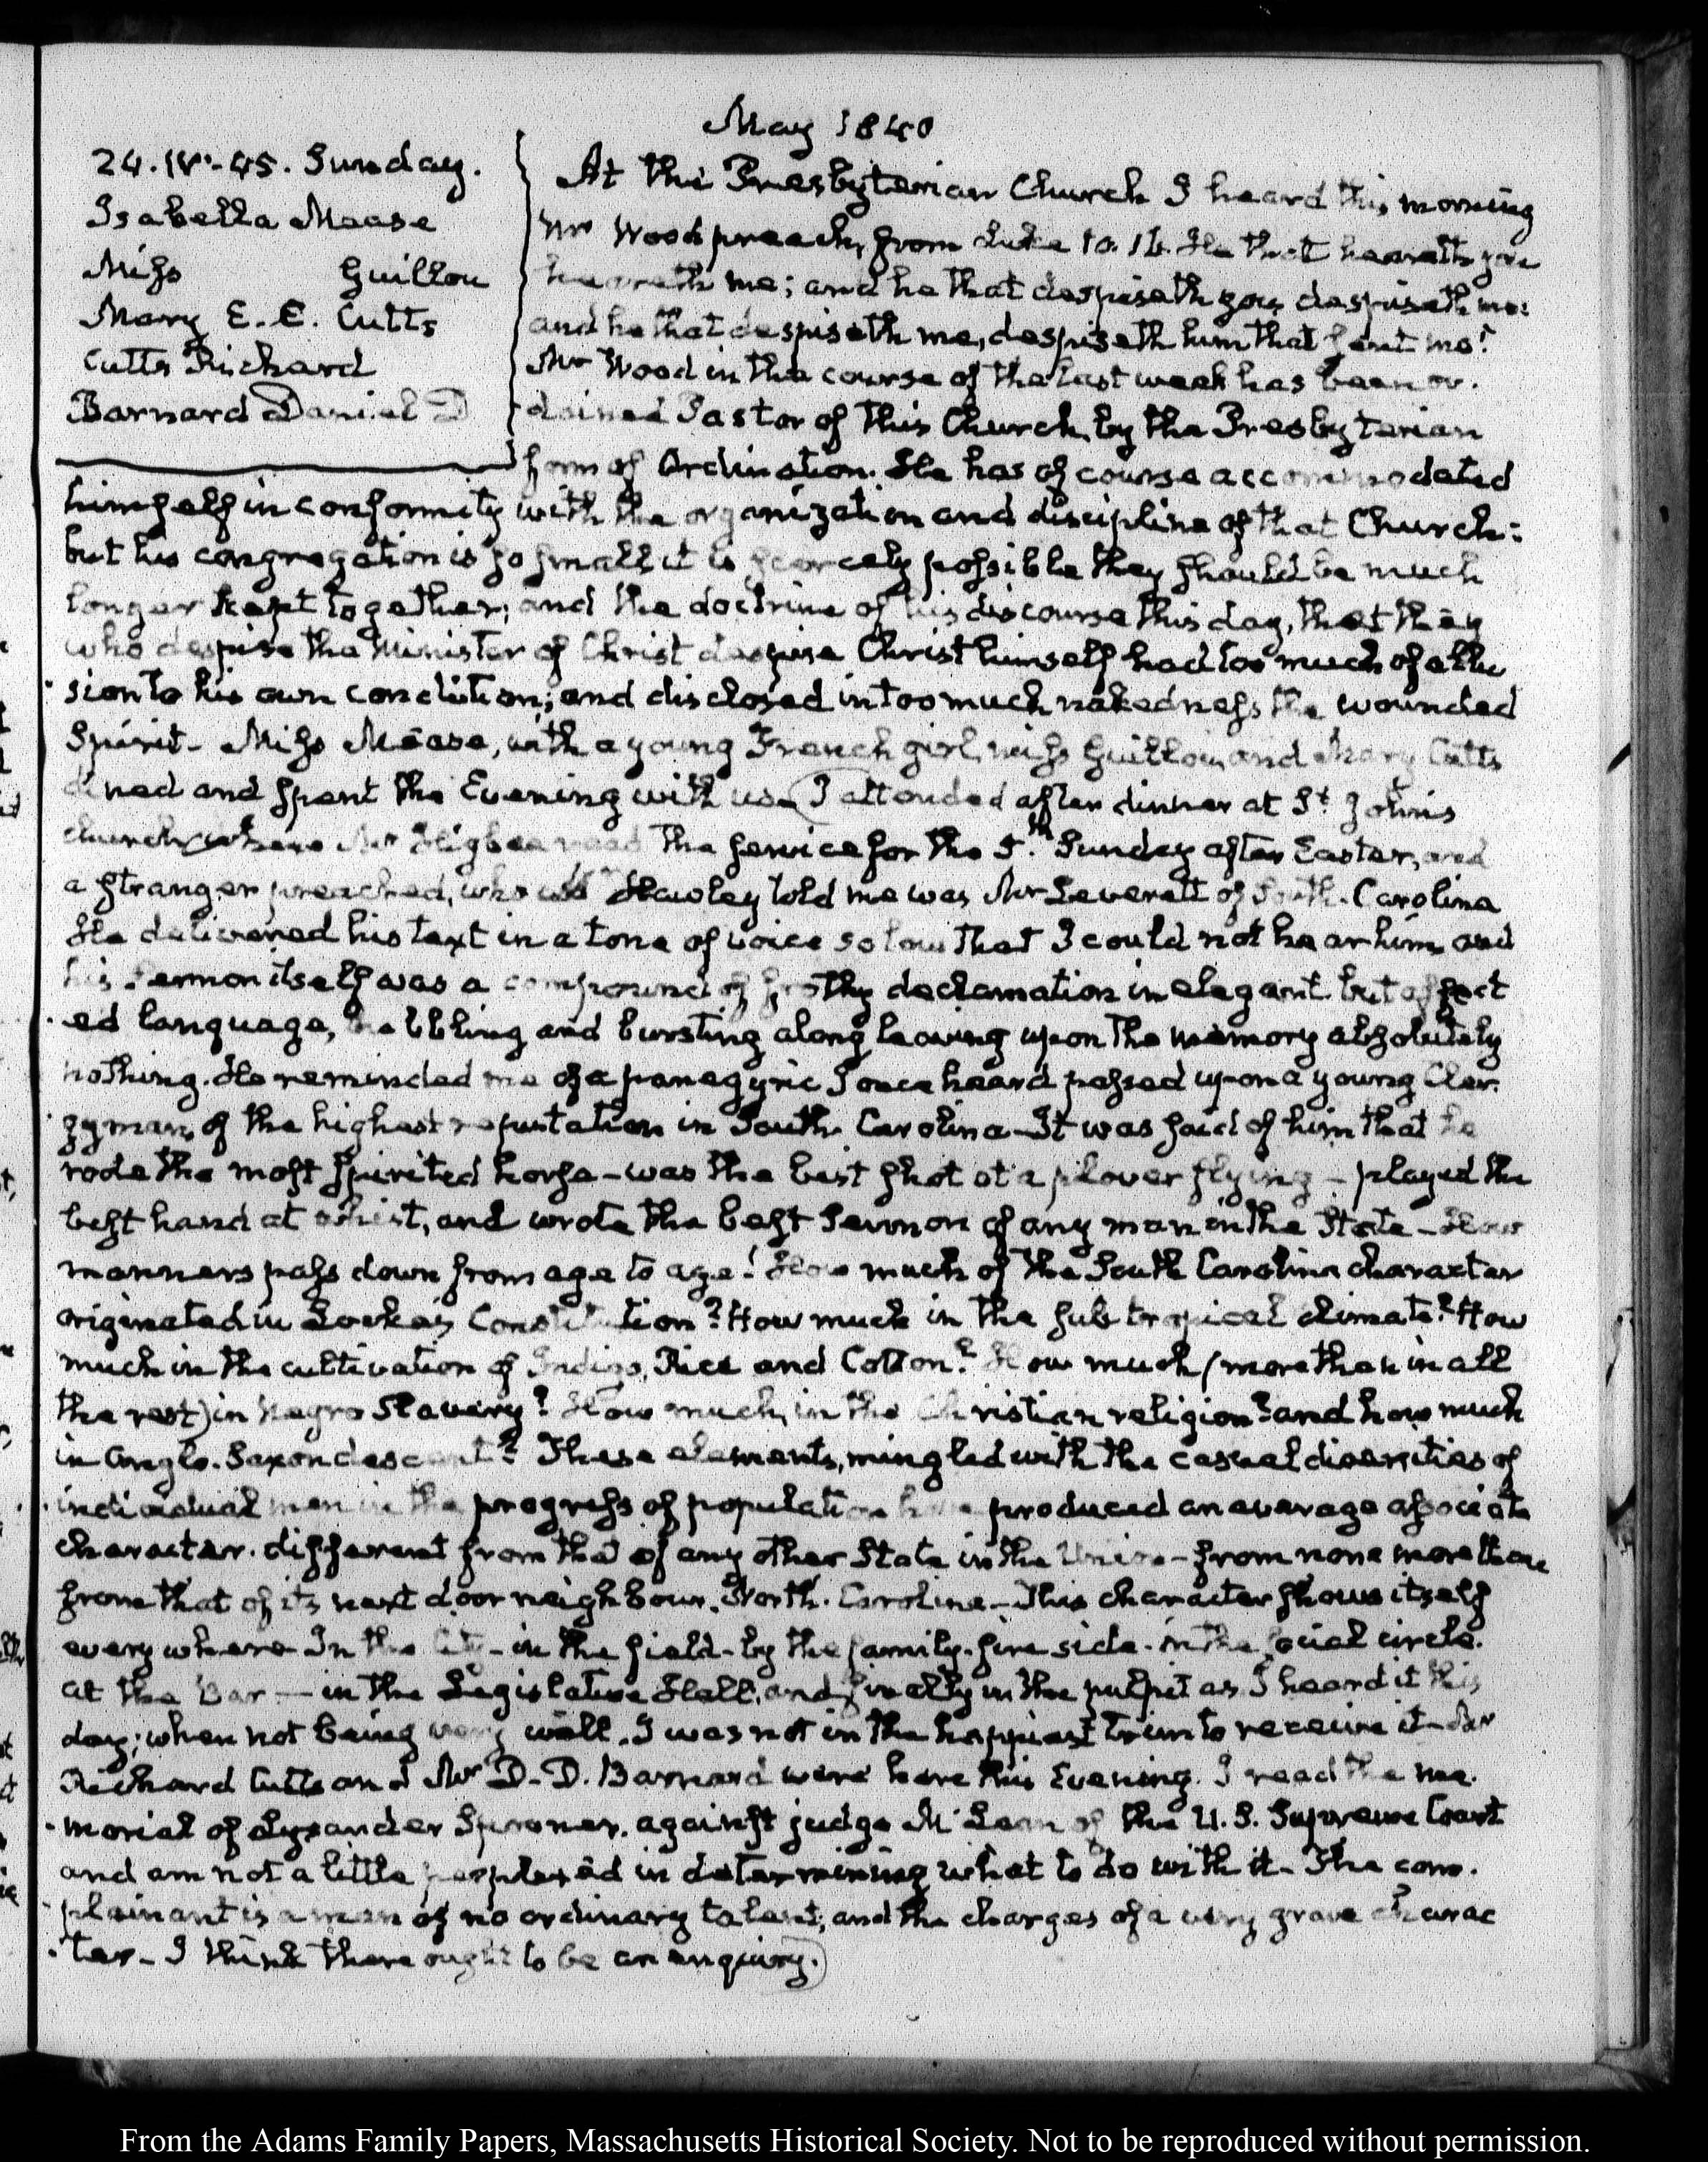 May 1840
24. IV.-45. Sunday.
Isabella Mease
Miss Guillou
Mary E. E. Cutts
Cutts Richard
Barnard Daniel D
At the Presbyterian Church I heard this morning
Mr Wood preach, from Luke 10. 16. He that heareth you
heareth me; and he that despiseth you despiseth me:
and he that despiseth me, despiseth him that sent me!
Mr Wood in the course of the last week has been or-
dained Pastor of this Church, by the Presbyterian
form of Ordination. He has of course accommodated
himself in conformity with the organization and discipline of that Church:
but his congregation is so small it is scarcely possible they should be much
longer kept together; and the doctrine of his discourse this day, that they
who despise the Minister of Christ despise Christ himself had too much of allu
sion to his own condition; and disclosed in too much nakedness the wounded
Spirit- Miss Mease, with a young French girl, miss Guillou, and Mary Cutts
dined and spent the Evening with us- (I attended after dinner at St. John's
church, where Mr Higbee read the service for the 5.th Sunday after Easter, and
a stranger preached, who Hawley told me was Mr Leverett of South-Carolina
He delivered his text in a tone of voice so low that I could not hear him, and
his Sermon itself was a compound of frothy declamation in elegant but affect
ed language, bubbling and bursting along, leaving upon the memory absolutely
nothing. He reminded me of a panegyric I once heard passed upon a young Cler-
gyman, of the highest reputation in South Carolina- It was said of him that he
rode the most spirited horse- was the best shot at a plover flying - played the
best hand at whist, and wrote the best Sermon of any man in the State- How
manners pass down from age to age! How much of the South Carolina character
originated in Locke's Constitution? How much in the sub tropical climate? How
much in the cultivation of Indigo, Rice and Cotton? How much (more than in all
the rest) in Negro Slavery? How much, in the Christian religion? and how much
in Anglo-Saxon descent? These elements, mingled with the casual diversities of
individual men in the progress of population have produced an average associate
character. different from that of any other State in the Union- from none more than
from that of its next door neighbour. North-Carolina- This character shows itself
every where- In the City- in the field- by the family-fire side- in the social circle.
at the Bar - in the Legislative Hall, and finally in the pulpit as I heard it this
day; when not being very well, I was not in the happiest trim to receive it- Mr
Richard Cutts and Mr D. D. Barnard were here this Evening. I read the me-
morial of Lysander Spooner, against judge McLean of the U.S. Supreme Court
and am not a little perplexed in determining what to do with it- The com-
plainant is a man of no ordinary talent; and the charges of a very grave charac
ter- I think there ought to be an enquiry.)
From the Adams Family Papers, Massachusetts Historical Society. Not to be reproduced without permission.